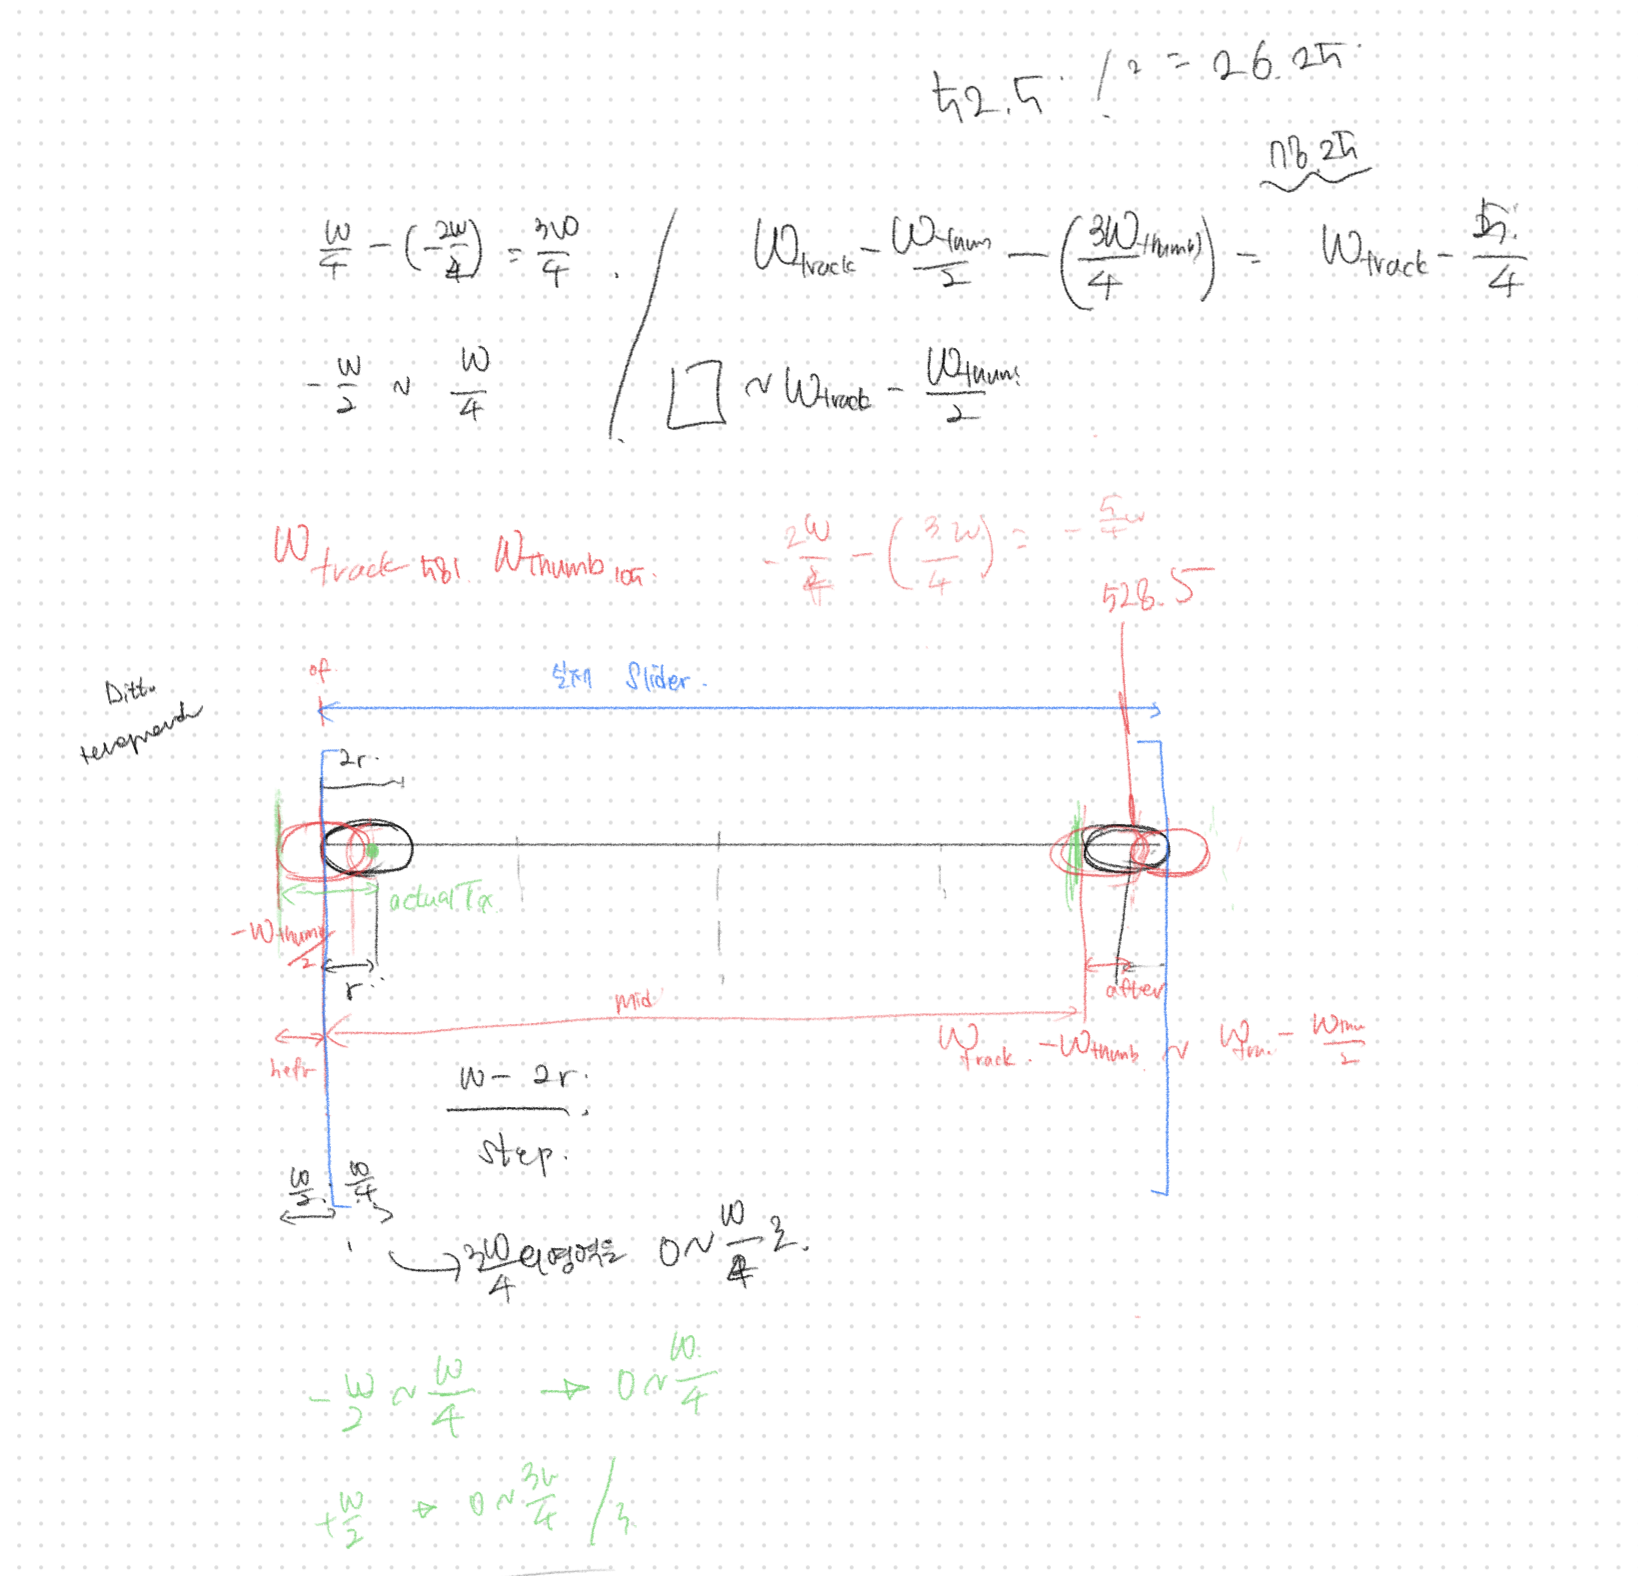 52.5 / 2 = 26.25
W/4 - (-2W/4) = 3W/4 .
W track - W thum/2 - (3W thumb/4) = W track - 5/4
-W/2 ~ W/4
□ ~ W track - W thum/2
W track 581 W thumb 105.
-2W/4 - (3W/4) = -5/4 W
528.5
실제 Slider.
2r.
actual Tx
-W thumb/2
r
mid
after
W track - W thumb ~ W tra. - W thu/2
W - 2r / step.
W/2 W/4
→ 3W/4 의 영역을 0 ~ W/4 로.
-W/2 ~ W/4 → 0 ~ W/4
+W/2 → 0 ~ 3W/4 / 3